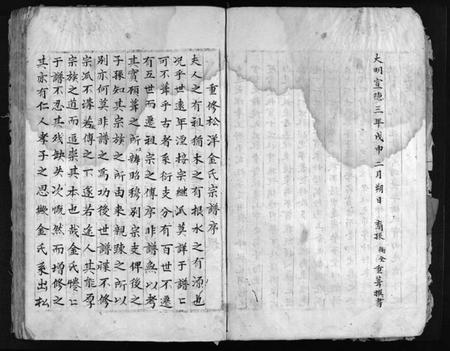 大明宣德三年戊申二月朔日 裔孫 衡全 重葺撰書
重修松洋金氏宗譜序
夫人之有祖猶木之有根水之有源也
況乎世遠年湮揆宗繼派莫詳于譜譜
可不葺乎古者系衍支分有百世不遷
有五世而遷祖宗之傳序非譜無以考
其實頼葺之所辨昭穆別宗支俾後之
子孫知其宗族之所由來親踈之所以
別亦何莫非譜之爲功後世譜禄不修
宗派不溝若傳之下遂若途人其能孚
宗族之道而追崇其本也哉金氏惓惓
于譜不忍其残缺失次慨然而增修之
其亦有仁人孝子之思 金氏系出松